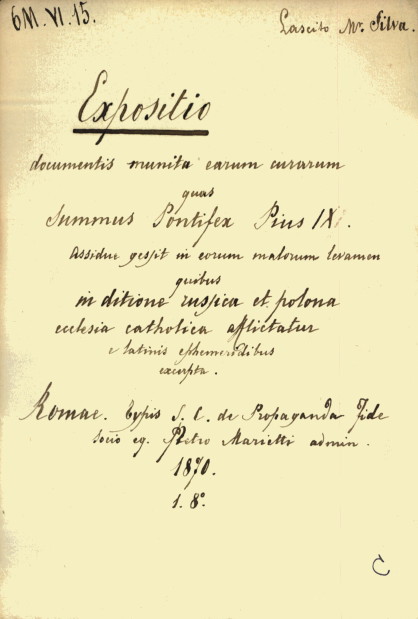 6M.VI.15.
Lascito Mr. Silva.
Expositio
documentis munita earum curarum
quas
Summus Pontifex Pius IX.
Assidue gessit in eorum malorum levamen
quibus
in ditione russica et polona
ecclesia catholica afflictatur
e latinis ephemeridibus
excerpta.
Romae. Typis S. C. de Propaganda Fide
socio eq. Pietro Marietti admin.
1870.
1. 8º.
C